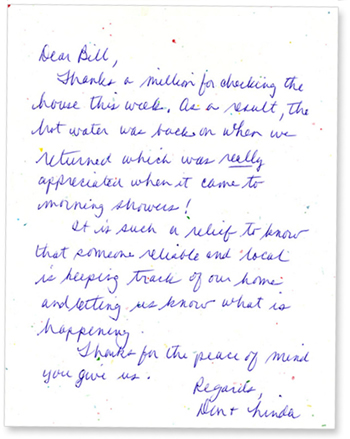 Dear Bill,
Thanks a million for checking the
house this week. As a result, the
hot water was back on when we
returned which was really
appreciated when it came to
morning showers!
It is such a relief to know
that someone reliable and local
is keeping track of our home
and letting us know what is
happening.
Thanks for the peace of mind
you give us.
Regards,
Don + Linda